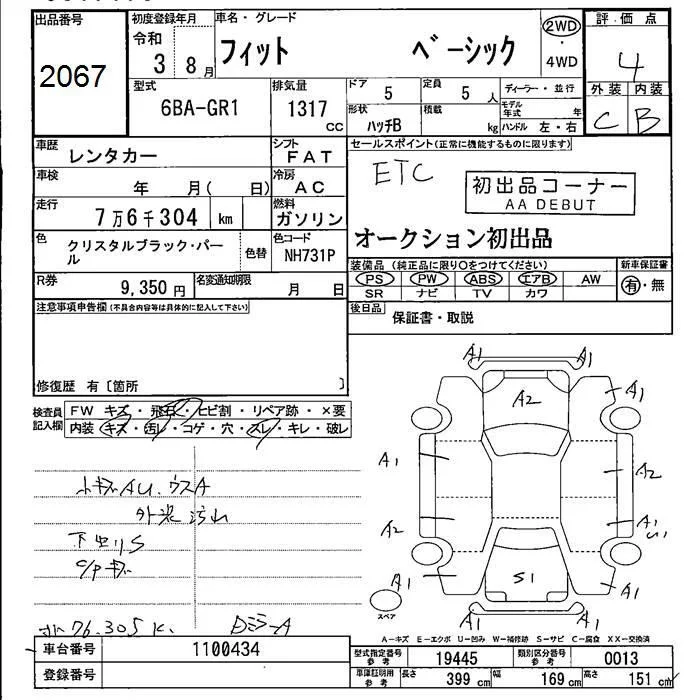 出品番号
2067
初度登録年月
令和
3 8月
車名・グレード
フィット ベーシック
2WD
・
4WD
評価点
4
外装 内装
C B
型式
6BA-GR1
排気量
1317
CC
ドア
5
定員
5人
形状
ハッチB
積載
kg
ディーラー・並行
モデル年式 年
ハンドル 左・右
車歴
レンタカー
シフト
FAT
車検
年 月( 日)
冷房
AC
走行
7万6千304 km
燃料
ガソリン
色
クリスタルブラック・パール
色替
色コード
NH731P
R券
9,350円
名変通知期限
月 日
セールスポイント(正常に機能するものに限ります)
ETC
初出品コーナー
AA DEBUT
オークション初出品
装備品(純正品に限り○をつけてください)
PS PW ABS エアB AW
SR ナビ TV カワ
新車保証書
有・無
後日品
保証書・取説
注意事項申告欄(不具合内容等は具体的に記入して下さい)
修復歴 有〔箇所 〕
検査員
記入欄
FW キズ・飛石・ヒビ割・リペア跡・×要
内装 キズ・汚レ・コゲ・穴・スレ・キレ・破レ
小キズAU.ウスA
外装汚れ
下廻りS
C/Pキズ
76.305K.
DミラーA
A1 A1
A2
A1
A1
A2
A2
A1
U1
A1
S1
A1
A1 A1
スペア
A―キズ E―エクボ U―凹み W―補修跡 S―サビ C―腐食 XX―交換済
車台番号
1100434
登録番号
型式指定番号
参考
19445
類別区分番号
参考
0013
車庫証明用
参考
長さ 399 cm 幅 169 cm 高さ 151 cm